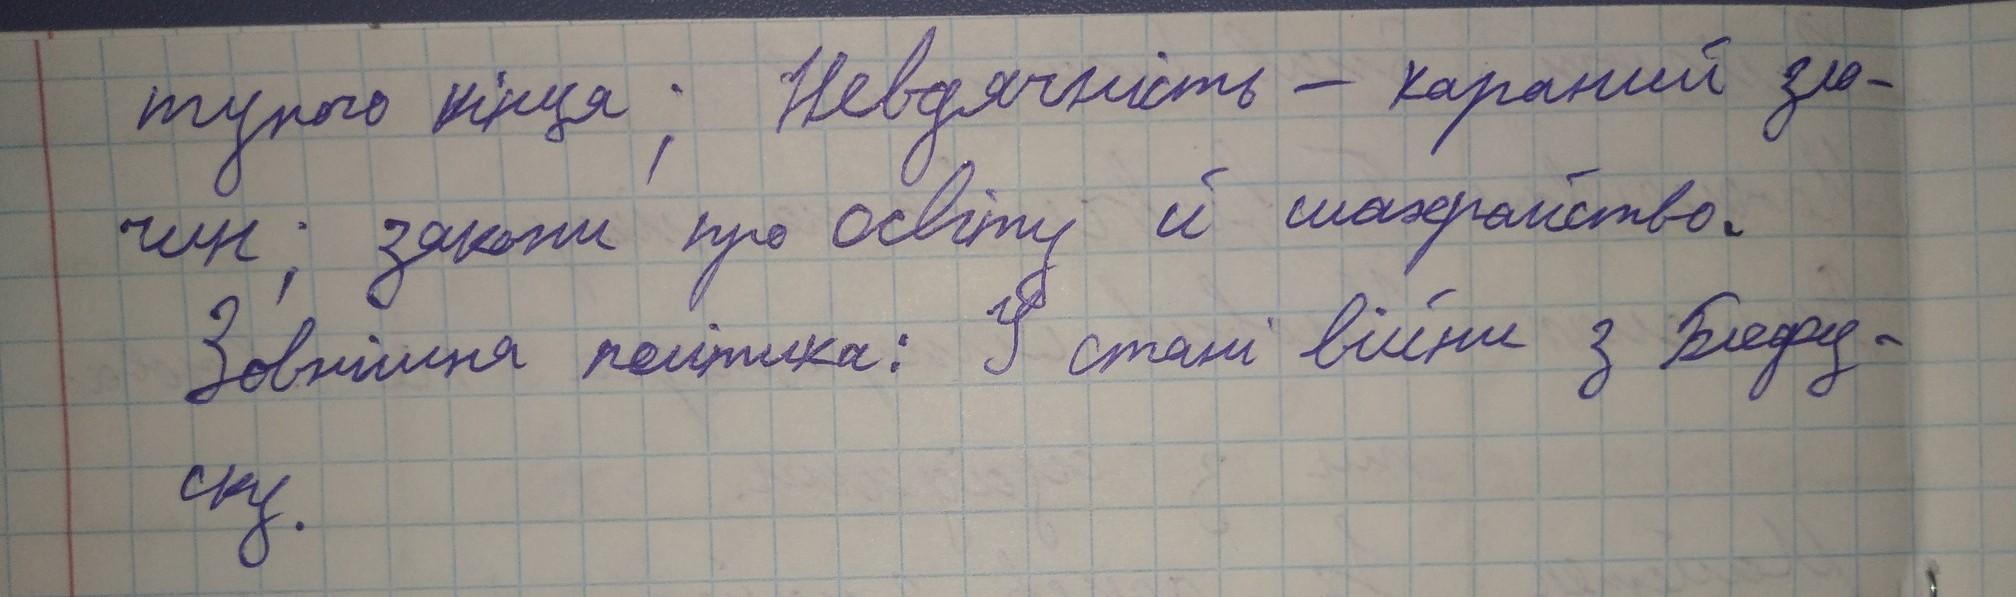 тупого кінця; Невдячність – караний зло-
чин; закони про освіту й шахрайство.
Зовнішня політика: У стані війни з Блефу-
ску.